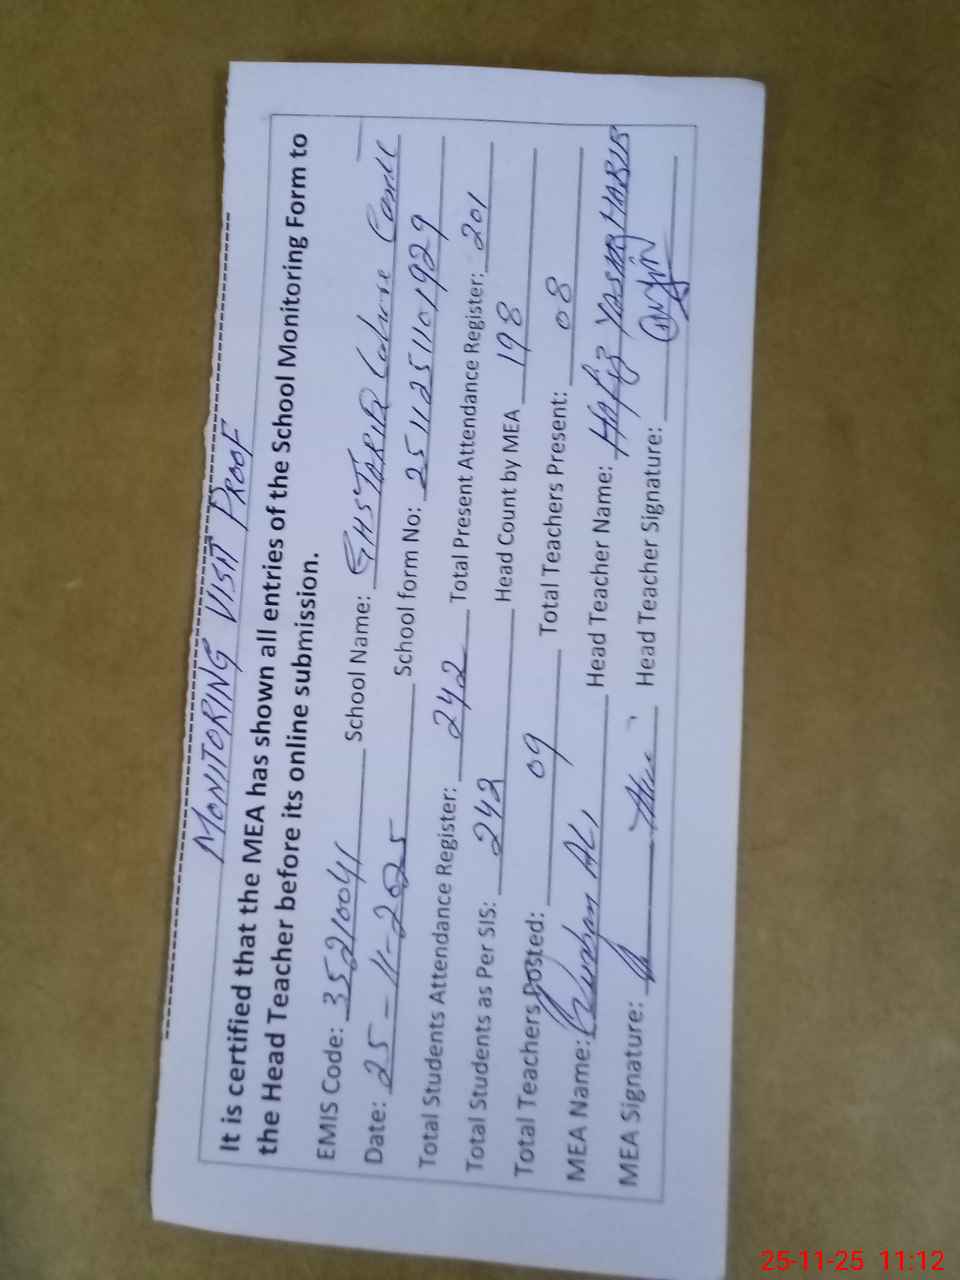 MONITORING VISIT PROOF
It is certified that the MEA has shown all entries of the School Monitoring Form to
the Head Teacher before its online submission.
EMIS Code: 35210041 School Name: GHS TARIQ Colony Cantt
Date: 25-11-2025 School form No: 2511251101929
Total Students Attendance Register: 242 Total Present Attendance Register: 201
Total Students as Per SIS: 242 Head Count by MEA 198
Total Teachers Posted: 09 Total Teachers Present: 08
MEA Name: ALI Head Teacher Name: HAFIZ YASIR HABIB
MEA Signature: Head Teacher Signature:
25-11-25 11:12